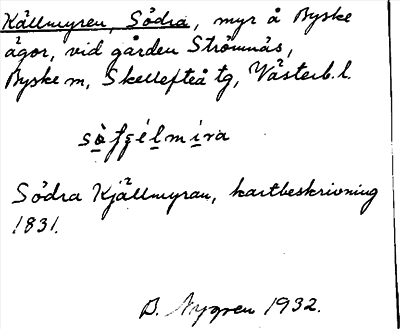 Källmyren, Södra, myr å Byske
ägor, vid gården Strömnäs,
Byske m, Skellefteå tg, Västerb. l.
Södra Kjällmyran, kartbeskrivning
1831.
B. Nygren 1932.